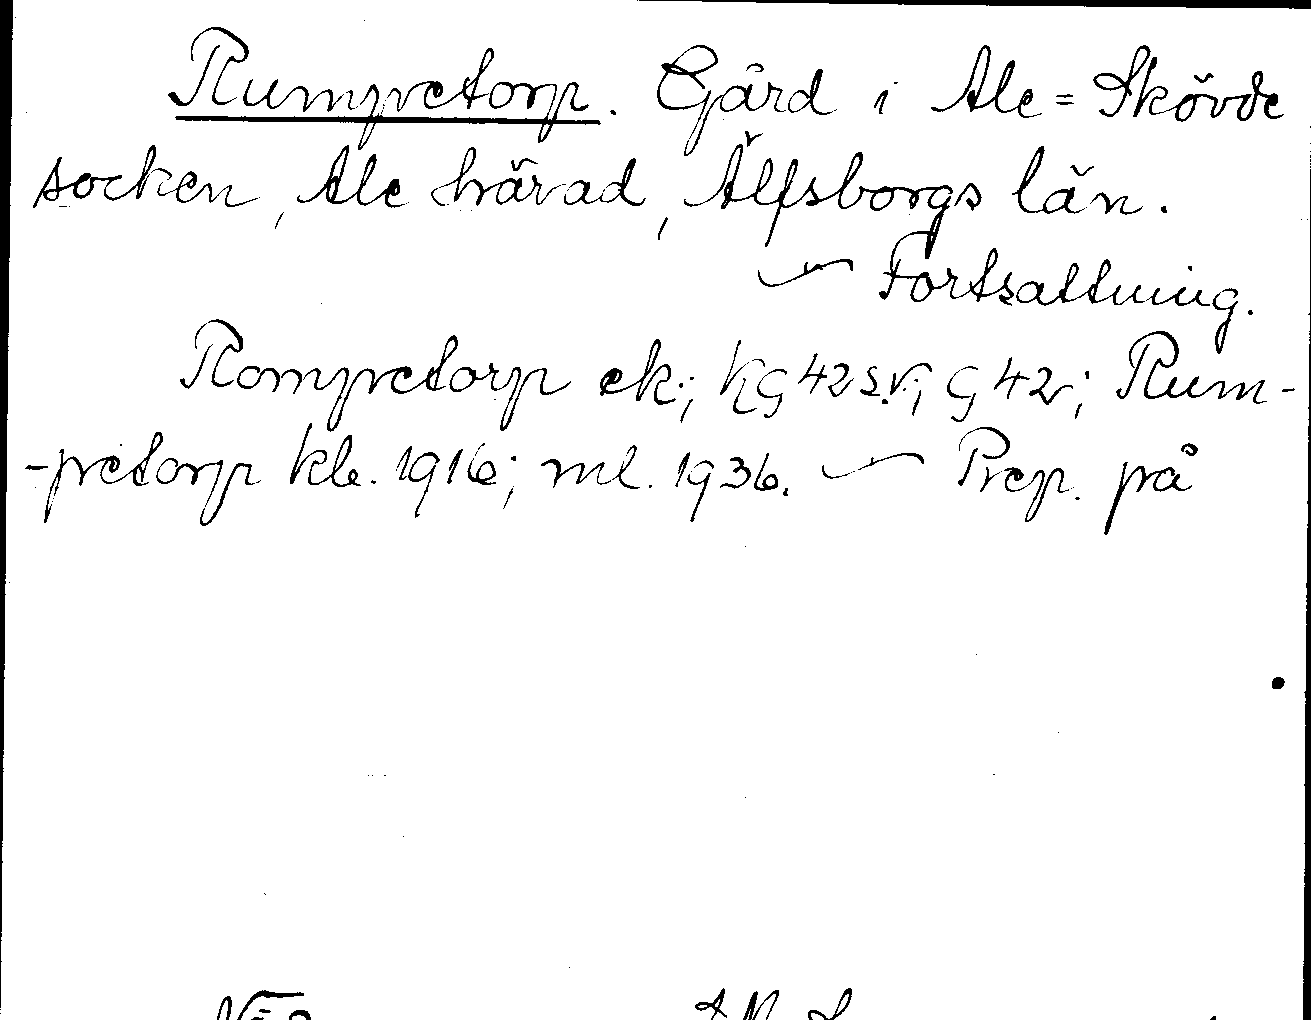 Rumpetorp. Gård i Ale=Skövde
socken, Ale härad, Älfsborgs län.
— Fortsättning.
Rompetorp ek.; KG 42 s.V; G 42; Rum-
-petorp kb. 1916; ml. 1936. — Prep. på